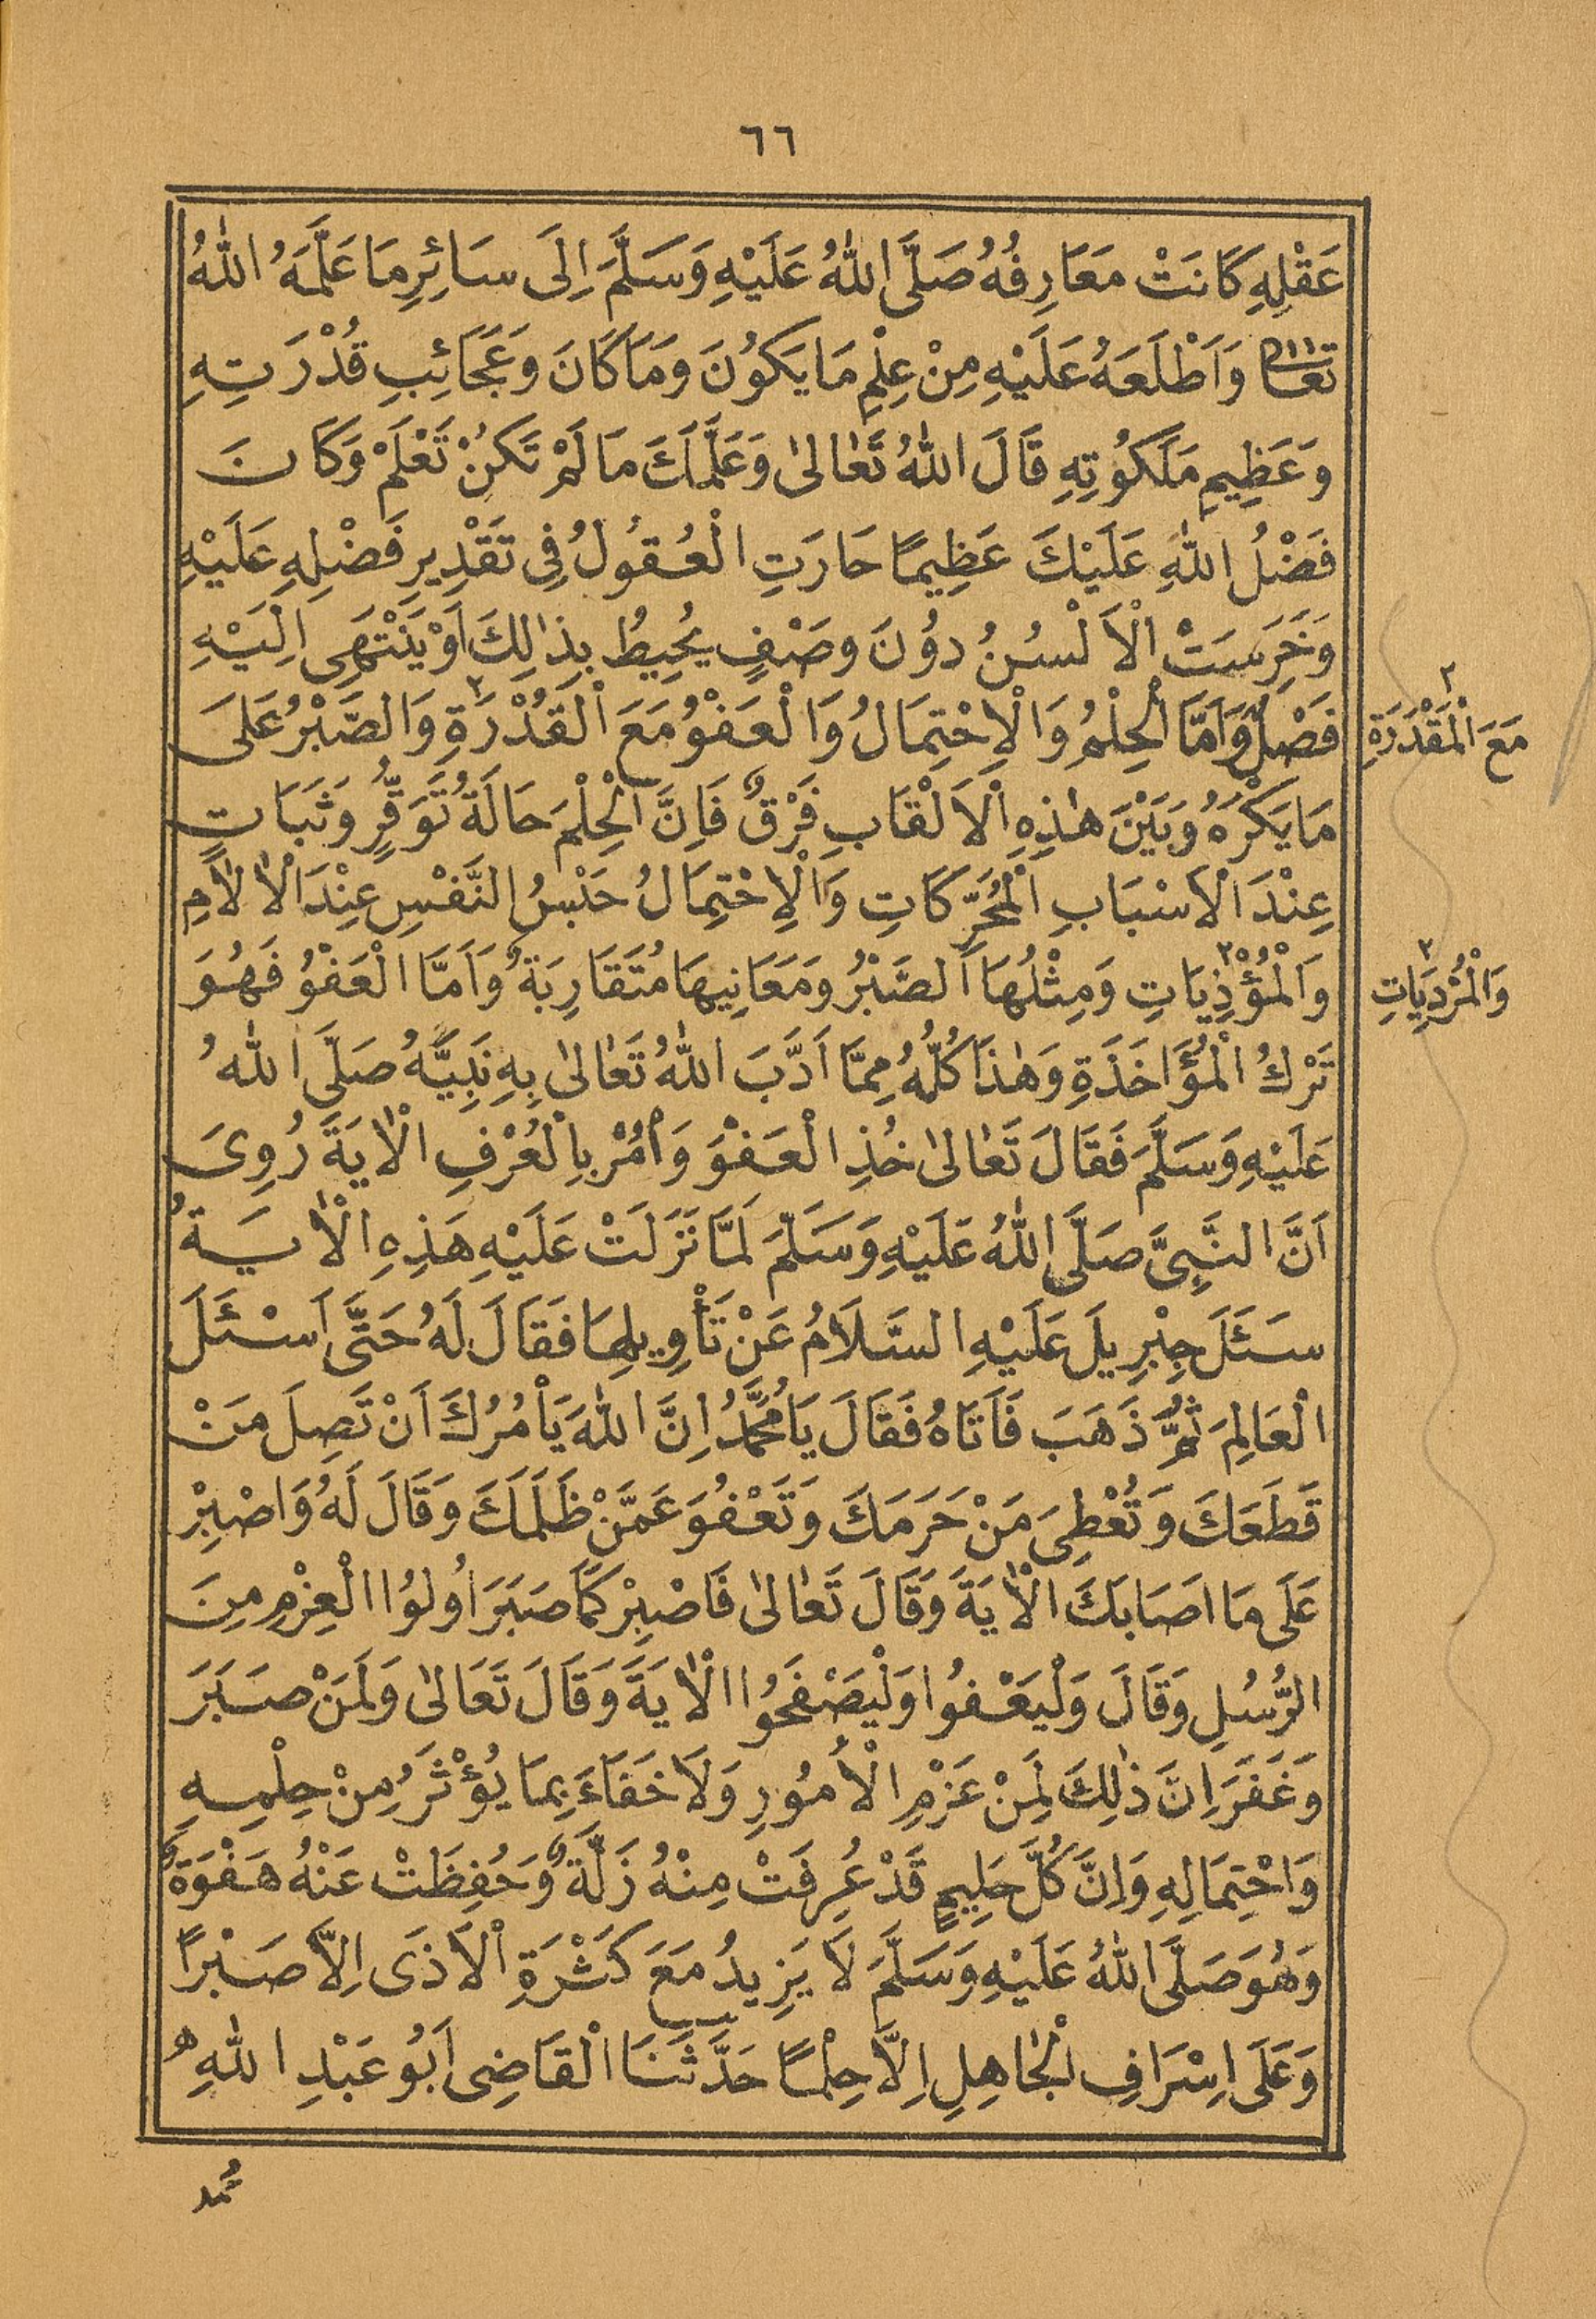 ٦٦
عَقْلِهِ كَانَتْ مَعَارِفُهُ صَلَّى اللهُ عَلَيْهِ وَسَلَّمَ اِلَى سَائِرِ مَا عَلَّمَهُ اللهُ
تعالى وَاَطْلَعَهُ عَلَيْهِ مِنْ عِلْمِ مَا يَكُونَ وَمَا كَانَ وَعَجَائِبِ قُدْرَتِهِ
وَعَظِيمِ مَلَكُوتِهِ قَالَ اللهُ تَعَالىٰ وَعَلَّمَكَ مَا لَمْ تَكُنْ تَعْلَمْ وَكَانَ
فَضْلُ اللهِ عَلَيْكَ عَظِيمًا حَارَتِ الْعُقُولُ فِى تَقْدِيرِ فَضْلِهِ عَلَيْهِ
وَخَرِسَتْ الْاَلْسُنُ دُونَ وَصْفٍ يُحِيطُ بِذٰلِكَ اَوْ يَنْتَهِى اِلَيْهِ
فَصْلٌ وَاَمَّا الْحِلْمُ وَالْاِحْتِمَالُ وَالْعَفْوُ مَعَ الْقَدُْرَةِ٢ وَالصَّبْرُ عَلَى
مَا يَكْرَهُ وَبَيْنَ هٰذِهِ الْاَلْقَابِ فَرْقٌ فَاِنَّ الْحِلْمَ حَالَةُ تَوَقُّرٍ وَثَبَاتٍ
عِنْدَ الْاَسْبَابِ الْمُحَرِّكَاتِ وَالْاِحْتِمَالُ حَبْسُ النَّفْسِ عِنْدَ الْاٰلَامِ
وَالْمُؤْذِيَاتِ٣ وَمِثْلُهَا الصَّبْرُ وَمَعَانِيهَا مُتَقَارِبَةٌ وَاَمَّا الْعَفْوُ فَهُوَ
تَرْكُ الْمُؤَاخَذَةِ وَهٰذَا كُلُّهُ مِمَّا اَدَّبَ اللهُ تَعَالىٰ بِهِ نَبِيَّهُ صَلَّى اللهُ
عَلَيْهِ وَسَلَّمَ فَقَالَ تَعَالىٰ خُذِ الْعَفْوَ وَأْمُرْ بِالْعُرْفِ الْاٰيَةَ رُوِىَ
اَنَّ النَّبِىَّ صَلَّى اللهُ عَلَيْهِ وَسَلَّمَ لَمَّا نَزَلَتْ عَلَيْهِ هَذِهِ الْاٰيَةُ
سَئَلَ جِبْرِيلَ عَلَيْهِ السَّلَامُ عَنْ تَأْوِيلِهَا فَقَالَ لَهُ حَتَّى اَسْئَلَ
الْعَالِمَ ثُمَّ ذَهَبَ فَاَتَاهُ فَقَالَ يَا مُحَمَّدُ اِنَّ اللهَ يَأْمُرُكَ اَنْ تَصِلَ مَنْ
قَطَعَكَ وَتُعْطِىَ مَنْ حَرَمَكَ وَتَعْفُوَ عَمَّنْ ظَلَمَكَ وَقَالَ لَهُ وَاصْبِرْ
عَلَى مَا اَصَابَكَ الْاٰيَةَ وَقَالَ تَعَالىٰ فَاصْبِرْ كَمَا صَبَرَ اُولُوا الْعِزْمِ مِنَ
الرُّسُلِ وَقَالَ وَلْيَعْفُوا وَلْيَصْفَحُوا الْاٰيَةَ وَقَالَ تَعَالىٰ وَلَمَنْ صَبَرَ
وَغَفَرَ اِنَّ ذٰلِكَ لَمِنْ عَزْمِ الْاُمُورِ وَلَا خَفَاءَ بِمَا يُؤْثَرُ مِنْ حِلْمِهِ
وَاحْتِمَالِهِ وَاِنَّ كُلَّ حَلِيمٍ قَدْ عُرِفَتْ مِنْهُ زَلَّةٌ وَحُفِظَتْ عَنْهُ هَفْوَةٌ
وَهُوَ صَلَّى اللهُ عَلَيْهِ وَسَلَّمَ لَا يَزِيدُ مَعَ كَثْرَةِ الْاَذَى اِلَّا صَبْرًا
وَعَلَى اِسْرَافِ الْجَاهِلِ اِلَّا حِلْمًا حَدَّثَنَا الْقَاضِى اَبُو عَبْدِ اللهِ
٢
مَعَ الْمَقْدَُرَةِ
٣
وَالْمُرْدِيَاتِ
مُحمد